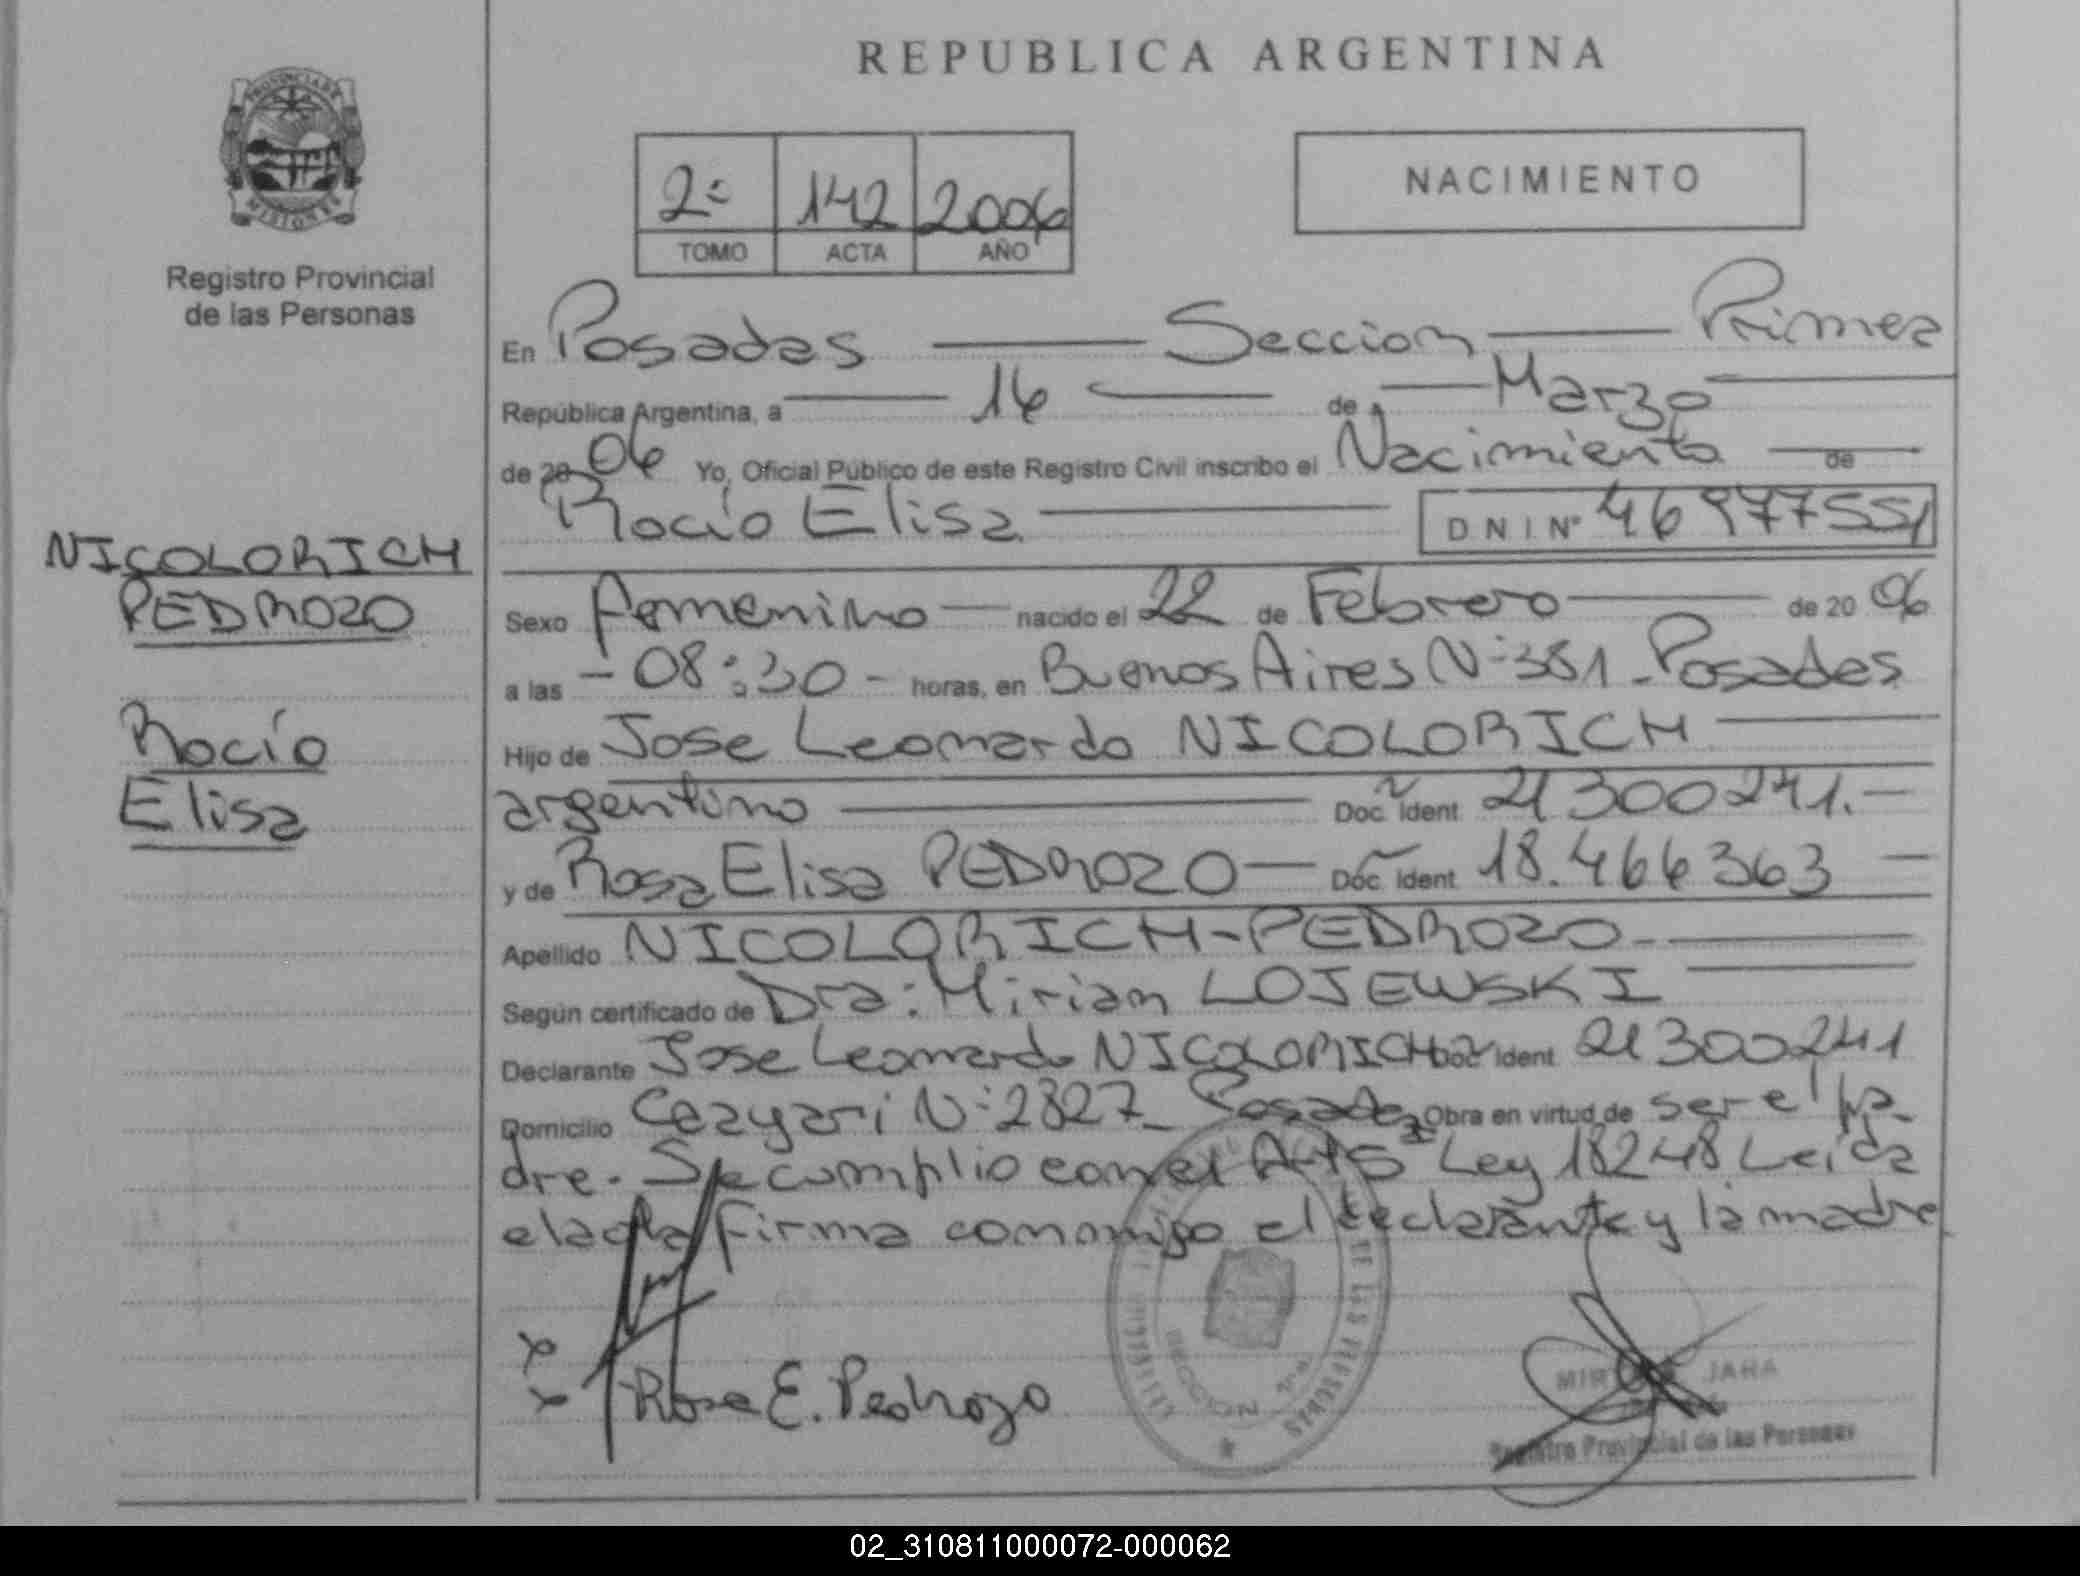 REPUBLICA ARGENTINA
PROVINCIA DE
MISIONES
Registro Provincial
de las Personas
2º 142 2006
TOMO ACTA AÑO
NACIMIENTO
En Posadas Seccion Primera
República Argentina, a 16 de Marzo
de 2006 Yo, Oficial Público de este Registro Civil inscribo el Nacimiento de
Rocío Elisa DNI Nº 46977551
NICOLORICH
PEDROZO
Rocío
Elisa
Sexo femenino nacido el 22 de Febrero de 20 06
a las - 08:30 - horas, en Buenos Aires Nº 381 - Posadas
Hijo de Jose Leonardo NICOLORICH
argentino Doc. Ident. 21300241.-
y de Rosa Elisa PEDROZO Doc. Ident. 18.466363
Apellido NICOLORICH-PEDROZO
Según certificado de Dra: Mirian LOJEWSKI
Declarante Jose Leonardo NICOLORICH Doc. Ident. 21300241
Domicilio Caayari Nº 2827 - Posadas Obra en virtud de ser el pa-
dre. Se cumplio con el Art 5º Ley 18248 Leida
el acta firma conmigo el declarante y la madre
Rosa E. Pedrozo
DE LAS PERSONAS
SECCION
JARA
Registro Provincial de las Personas
02_310811000072-000062